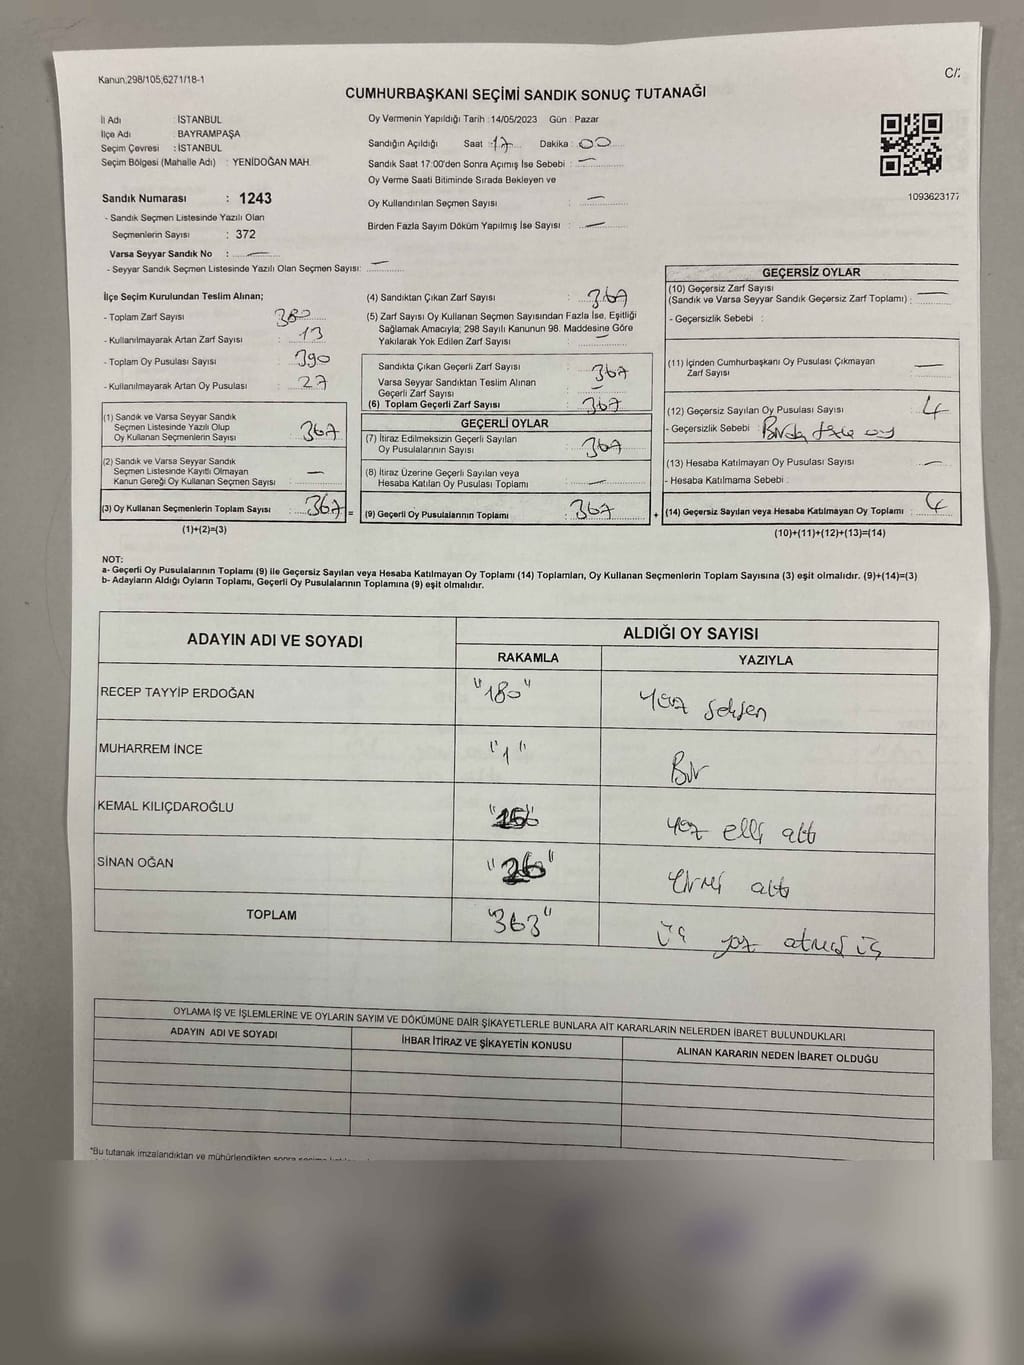 Kanun,298/105,6271/18-1
C/2
CUMHURBAŞKANI SEÇİMİ SANDIK SONUÇ TUTANAĞI
İl Adı : İSTANBUL
İlçe Adı : BAYRAMPAŞA
Seçim Çevresi : İSTANBUL
Seçim Bölgesi (Mahalle Adı) : YENİDOĞAN MAH.
Oy Vermenin Yapıldığı Tarih : 14/05/2023 Gün : Pazar
Sandığın Açıldığı Saat : 17 Dakika : 00
Sandık Saat 17:00'den Sonra Açımış İse Sebebi : —
Oy Verme Saati Bitiminde Sırada Bekleyen ve
Oy Kullandırılan Seçmen Sayısı : —
Birden Fazla Sayım Döküm Yapılmış İse Sayısı : —
1093623177
Sandık Numarası : 1243
- Sandık Seçmen Listesinde Yazılı Olan
Seçmenlerin Sayısı : 372
Varsa Seyyar Sandık No : —
- Seyyar Sandık Seçmen Listesinde Yazılı Olan Seçmen Sayısı: —
İlçe Seçim Kurulundan Teslim Alınan;
- Toplam Zarf Sayısı : 380
- Kullanılmayarak Artan Zarf Sayısı : 13
- Toplam Oy Pusulası Sayısı : 390
- Kullanılmayarak Artan Oy Pusulası : 27
(1) Sandık ve Varsa Seyyar Sandık
Seçmen Listesinde Yazılı Olup
Oy Kullanan Seçmenlerin Sayısı : 367
(2) Sandık ve Varsa Seyyar Sandık
Seçmen Listesinde Kayıtlı Olmayan
Kanun Gereği Oy Kullanan Seçmen Sayısı : —
(3) Oy Kullanan Seçmenlerin Toplam Sayısı : 367 =
(1)+(2)=(3)
(4) Sandıktan Çıkan Zarf Sayısı : 367
(5) Zarf Sayısı Oy Kullanan Seçmen Sayısından Fazla İse, Eşitliği
Sağlamak Amacıyla; 298 Sayılı Kanunun 98. Maddesine Göre
Yakılarak Yok Edilen Zarf Sayısı : —
Sandıkta Çıkan Geçerli Zarf Sayısı : 367
Varsa Seyyar Sandıktan Teslim Alınan
Geçerli Zarf Sayısı : —
(6) Toplam Geçerli Zarf Sayısı : 367
GEÇERLİ OYLAR
(7) İtiraz Edilmeksizin Geçerli Sayılan
Oy Pusulalarının Sayısı : 367
(8) İtiraz Üzerine Geçerli Sayılan veya
Hesaba Katılan Oy Pusulası Toplamı : —
(9) Geçerli Oy Pusulalarının Toplamı : 367 +
GEÇERSİZ OYLAR
(10) Geçersiz Zarf Sayısı
(Sandık ve Varsa Seyyar Sandık Geçersiz Zarf Toplamı) : —
- Geçersizlik Sebebi :
(11) İçinden Cumhurbaşkanı Oy Pusulası Çıkmayan
Zarf Sayısı : —
(12) Geçersiz Sayılan Oy Pusulası Sayısı : 4
- Geçersizlik Sebebi : Birden fazla oy
(13) Hesaba Katılmayan Oy Pusulası Sayısı : —
- Hesaba Katılmama Sebebi :
(14) Geçersiz Sayılan veya Hesaba Katılmayan Oy Toplamı : 4
(10)+(11)+(12)+(13)=(14)
NOT:
a- Geçerli Oy Pusulalarının Toplamı (9) ile Geçersiz Sayılan veya Hesaba Katılmayan Oy Toplamı (14) Toplamları, Oy Kullanan Seçmenlerin Toplam Sayısına (3) eşit olmalıdır. (9)+(14)=(3)
b- Adayların Aldığı Oyların Toplamı, Geçerli Oy Pusulalarının Toplamına (9) eşit olmalıdır.
ADAYIN ADI VE SOYADI
ALDIĞI OY SAYISI
RAKAMLA YAZIYLA
RECEP TAYYİP ERDOĞAN "180" Yüz seksen
MUHARREM İNCE "1" Bir
KEMAL KILIÇDAROĞLU "156" Yüz elli altı
SİNAN OĞAN "26" Yirmi altı
TOPLAM "363" Üç yüz atmış üç
OYLAMA İŞ VE İŞLEMLERİNE VE OYLARIN SAYIM VE DÖKÜMÜNE DAİR ŞİKAYETLERLE BUNLARA AİT KARARLARIN NELERDEN İBARET BULUNDUKLARI
ADAYIN ADI VE SOYADI İHBAR İTİRAZ VE ŞİKAYETİN KONUSU ALINAN KARARIN NEDEN İBARET OLDUĞU
*Bu tutanak imzalandıktan ve mühürlendikten sonra